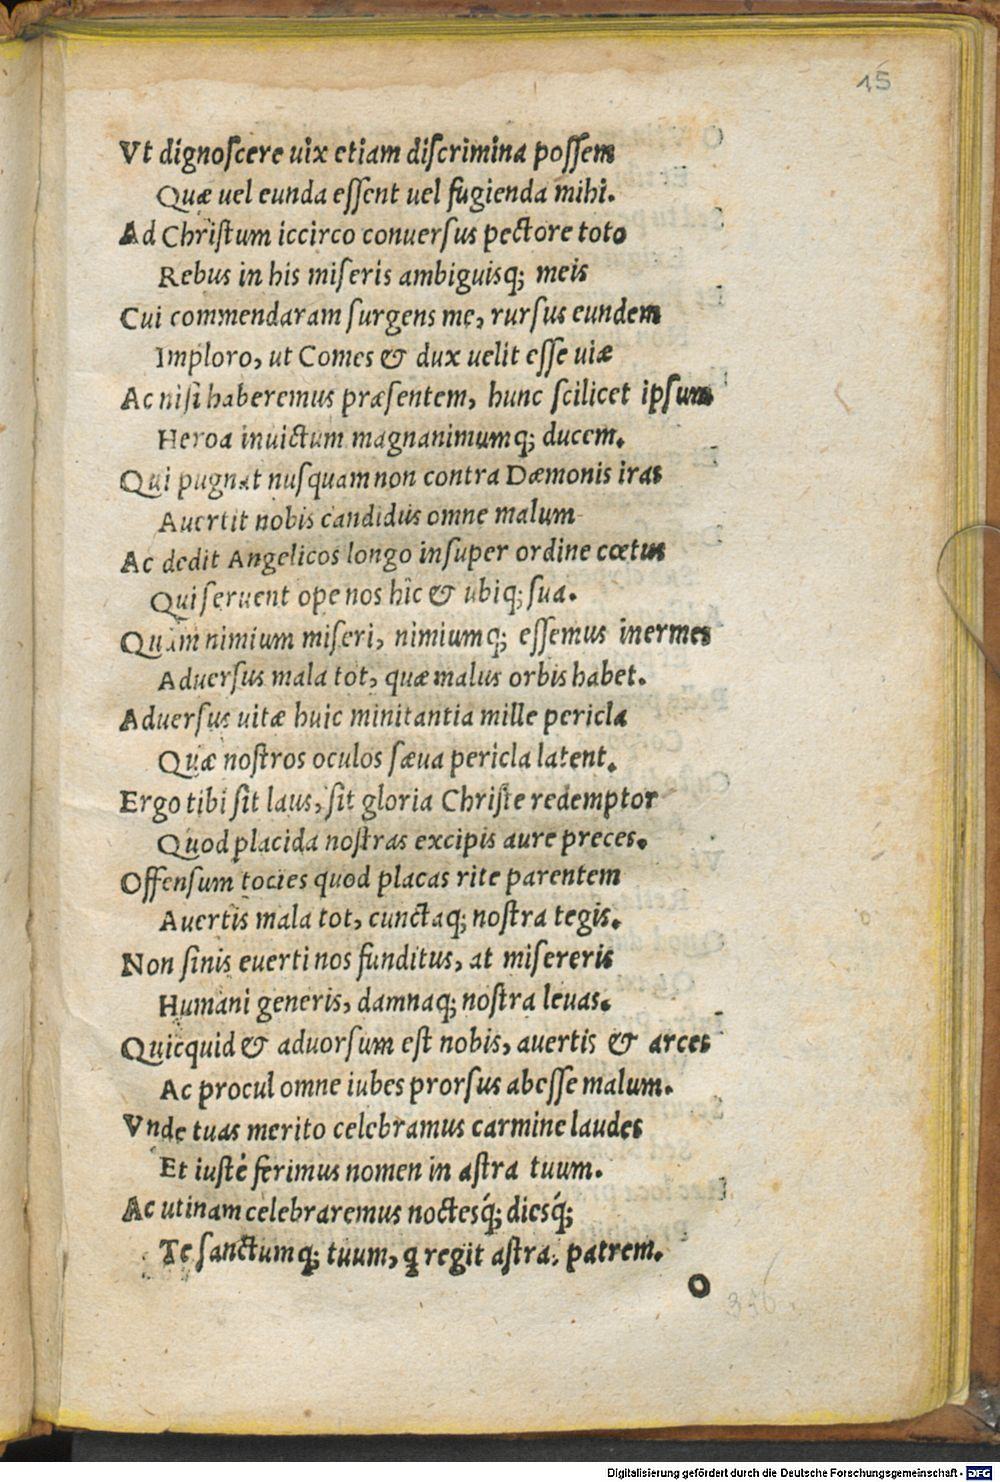 15
Vt dignoscere uix etiam discrimina possem
Quæ uel eunda essent uel fugienda mihi.
Ad Christum iccirco conuersus pectore toto
Rebus in his miseris ambiguisq; meis
Cui commendaram surgens me, rursus eundem
Imploro, ut Comes & dux uelit esse uiæ
Ac nisi haberemus præsentem, hunc scilicet ipsum
Heroa inuictum magnanimumq; ducem.
Qui pugnat nusquam non contra Dæmonis iras
Auertit nobis candidus omne malum
Ac dedit Angelicos longo insuper ordine cœtus
Qui seruent ope nos hîc & ubiq; sua.
Quàm nimium miseri, nimiumq; essemus inermes
Aduersus mala tot, quæ malus orbis habet.
Aduersus uitæ huic minitantia mille pericla
Quæ nostros oculos sæua pericla latent.
Ergo tibi sit laus, sit gloria Christe redemptor
Quod placida nostras excipis aure preces.
Offensum tocies quod placas rite parentem
Auertis mala tot, cunctaq; nostra tegis.
Non sinis euerti nos funditus, at misereris
Humani generis, damnaq; nostra leuas.
Quicquid & aduorsum est nobis, auertis & arces
Ac procul omne iubes prorsus abesse malum.
Vnde tuas merito celebramus carmine laudes
Et iustè ferimus nomen in astra tuum.
Ac utinam celebraremus noctesq́; diesq́;
Te sanctumq; tuum, q regit astra, patrem.
O
356
Digitalisierung gefördert durch die Deutsche Forschungsgemeinschaft - DFG